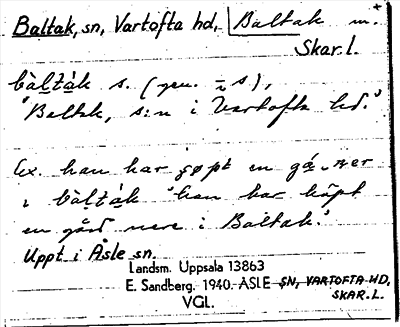 Baltak, sn, Vartofta hd, Baltak m.
Skar. l.
bàlták s. (gen. = s),
"Baltak, s:n i Vartofta hd."
Ex. han har çøpt en gá, ner
i bàlták "han har köpt
en gård nere i Baltak."
Uppt. i Åsle sn.
Landsm. Uppsala 13863
E. Sandberg. 1940. ÅSLE SN, VARTOFTA HD,
SKAR. L.
VGL.